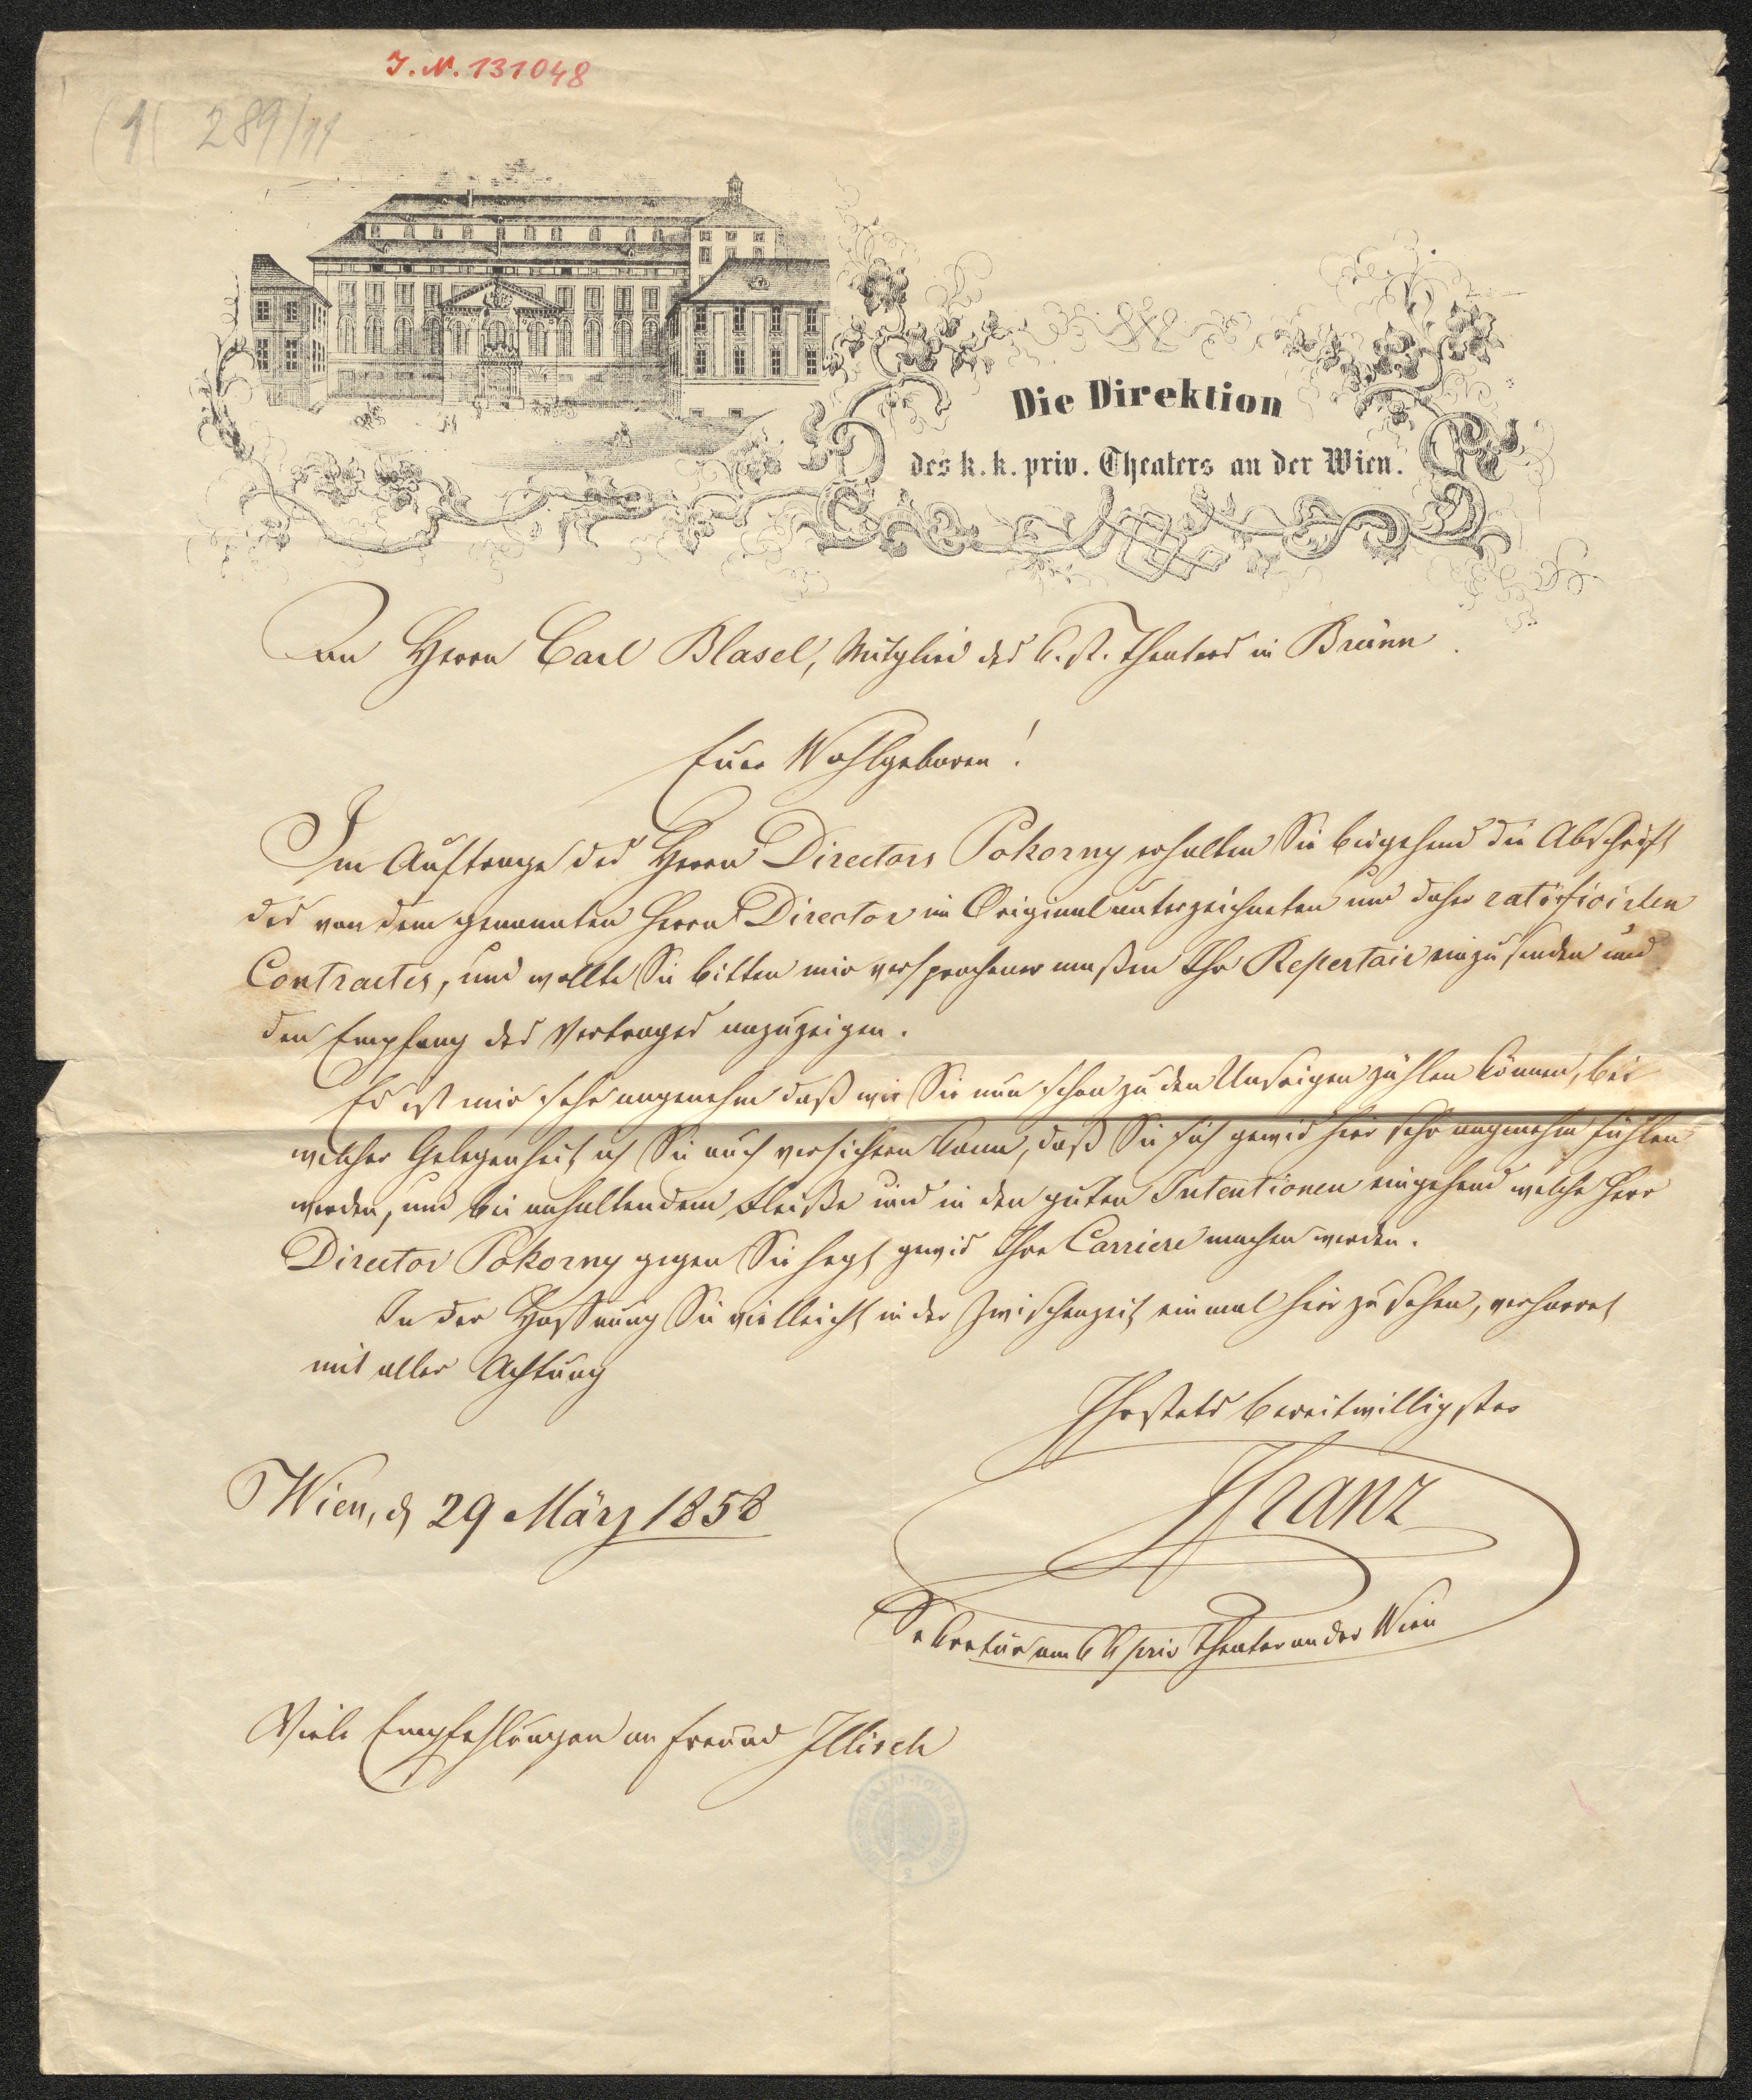 J. N. 131048
289/11
Die Direktion
des k. k. priv. Theaters an der Wien.
An Herrn Carl Blasel, Mitglied des k. st. Theaters in Brünn.
Euer Wohlgeboren!
Im Auftrage des Herrn Directors Pokorny erhalten Sie beigehend die Abschrift
des von dem genannten Herrn Director im Original unterzeichneten und daher ratificirten
Contractes, und wollte Sie bitten mir versprochener maßen Ihr Repertoir einzusenden und
den Empfang des Vertrages anzuzeigen.
Es ist mir sehr angenehm daß wir Sie nun schon zu den Unsrigen zählen können, bei
welcher Gelegenheit ich Sie auch versichern kann, daß Sie sich gewis hier sehr angenehm fühlen
werden, und bei anhaltendem Fleiße und in den guten Intentionen eingehend welche Herr
Director Pokorny gegen Sie hegt gewis Ihre Carriere machen werden.
In der Hoffnung Sie vielleicht in der Zwischenzeit einmal hier zu sehen, verharret
mit aller Achtung
Ihr stets bereitwilligster
Franz
Wien, d 29 März 1858
Sekretär am k k priv Theater an der Wien
Viele Empfehlungen an Freund Illisch